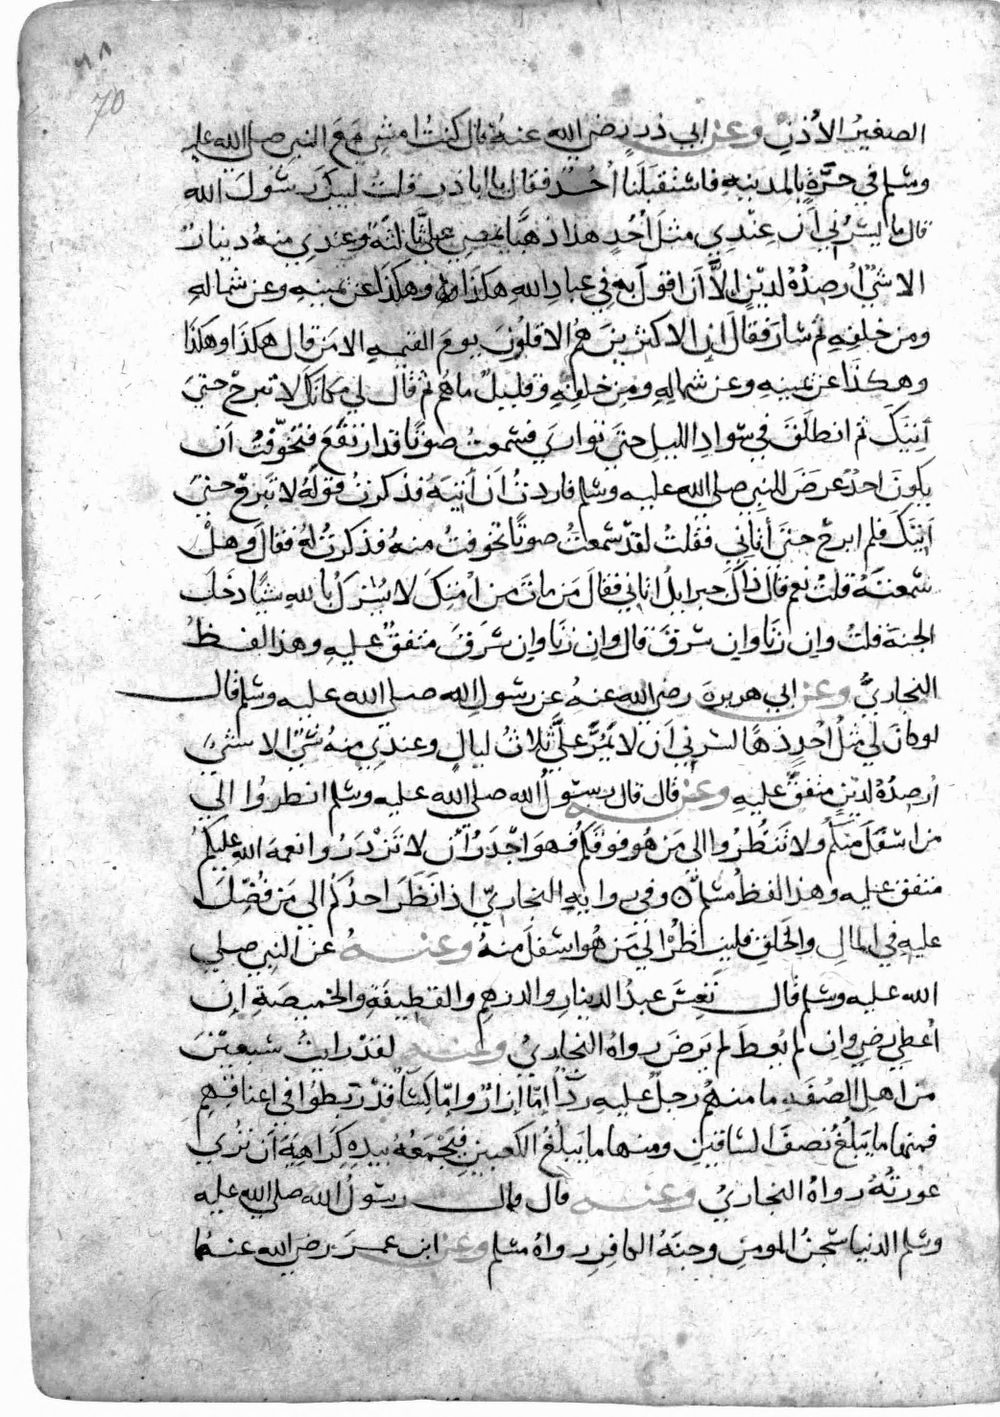 ٦٨
70
الصغير الأذن وعن ابي ذر رضي الله عنه قال كنت امشي مع النبي صلى الله عليه
وسلم في حرة بالمدينة فاستقبلنا أحد فقال يا ابا ذر قلت لبيك رسول الله
قال ما يسرني أن عندي مثل أحد هذا ذهبا تمضي علي ثالثة وعندي منه دينار
الا شيء أرصده لدين الا أن اقول به في عباد الله هكذا وهكذا عن يمينه وعن شماله
ومن خلفه ثم سار فقال إن الاكثرين هم الاقلون يوم القيمة الا من قال هكذا وهكذا
وهكذا عن يمينه وعن شماله ومن خلفه وقليل ما هم ثم قال لي مكانك لا تبرح حتى
آتيك ثم انطلق في سواد الليل حتى توارى فسمعت صوتا قد ارتفع فتخوفت أن
يكون احد عرض للنبي صلى الله عليه وسلم فاردت أن آتيه فذكرت قوله لا تبرح حتى
آتيك فلم ابرح حتى أتاني فقلت لقد سمعت صوتا تخوفت منه فذكرت له فقال وهل
سمعته قلت نعم قال ذاك جبرايل اتاني فقال من مات من امتك لا يشرك بالله شيا دخل
الجنة قلت وان زنا وان سرق قال وان زنا وان سرق متفق عليه وهذا لفظ
البخاري وعن ابي هريرة رضي الله عنه عن رسول الله صلى الله عليه وسلم قال
لو كان لي مثل أحد ذهبا لسرني أن لا تمر علي ثلاث ليال وعندي منه شي الا شي
أرصده لدين متفق عليه وعنه قال قال رسول الله صلى الله عليه وسلم انظروا الى
من اسفل منكم ولا تنظروا الى من هو فوقكم فهو اجدر أن لا تزدروا نعمة الله عليكم
متفق عليه وهذا لفظ مسلم وفي رواية البخاري اذا نظر احدكم الى من فضل
عليه في المال والخلق فلينظر الى من هو اسفل منه وعنه عن النبي صلى
الله عليه وسلم قال تعس عبد الدينار والدرهم والقطيفة والخميصة إن
أعطي رضي وان لم يعط لم يرض رواه البخاري وعنه لقد رايت سبعين
من اهل الصفة ما منهم رجل عليه ردا إما إزار وإما كسا قد ربطوا في اعناقهم
فمنها ما يبلغ نصف الساقين ومنها ما يبلغ الكعبين فيجمعه بيده كراهية أن ترى
عورته رواه البخاري وعنه قال قال رسول الله صلى الله عليه
وسلم الدنيا سجن المومن وجنة الكافر رواه مسلم وعن ابن عمر رضي الله عنهما